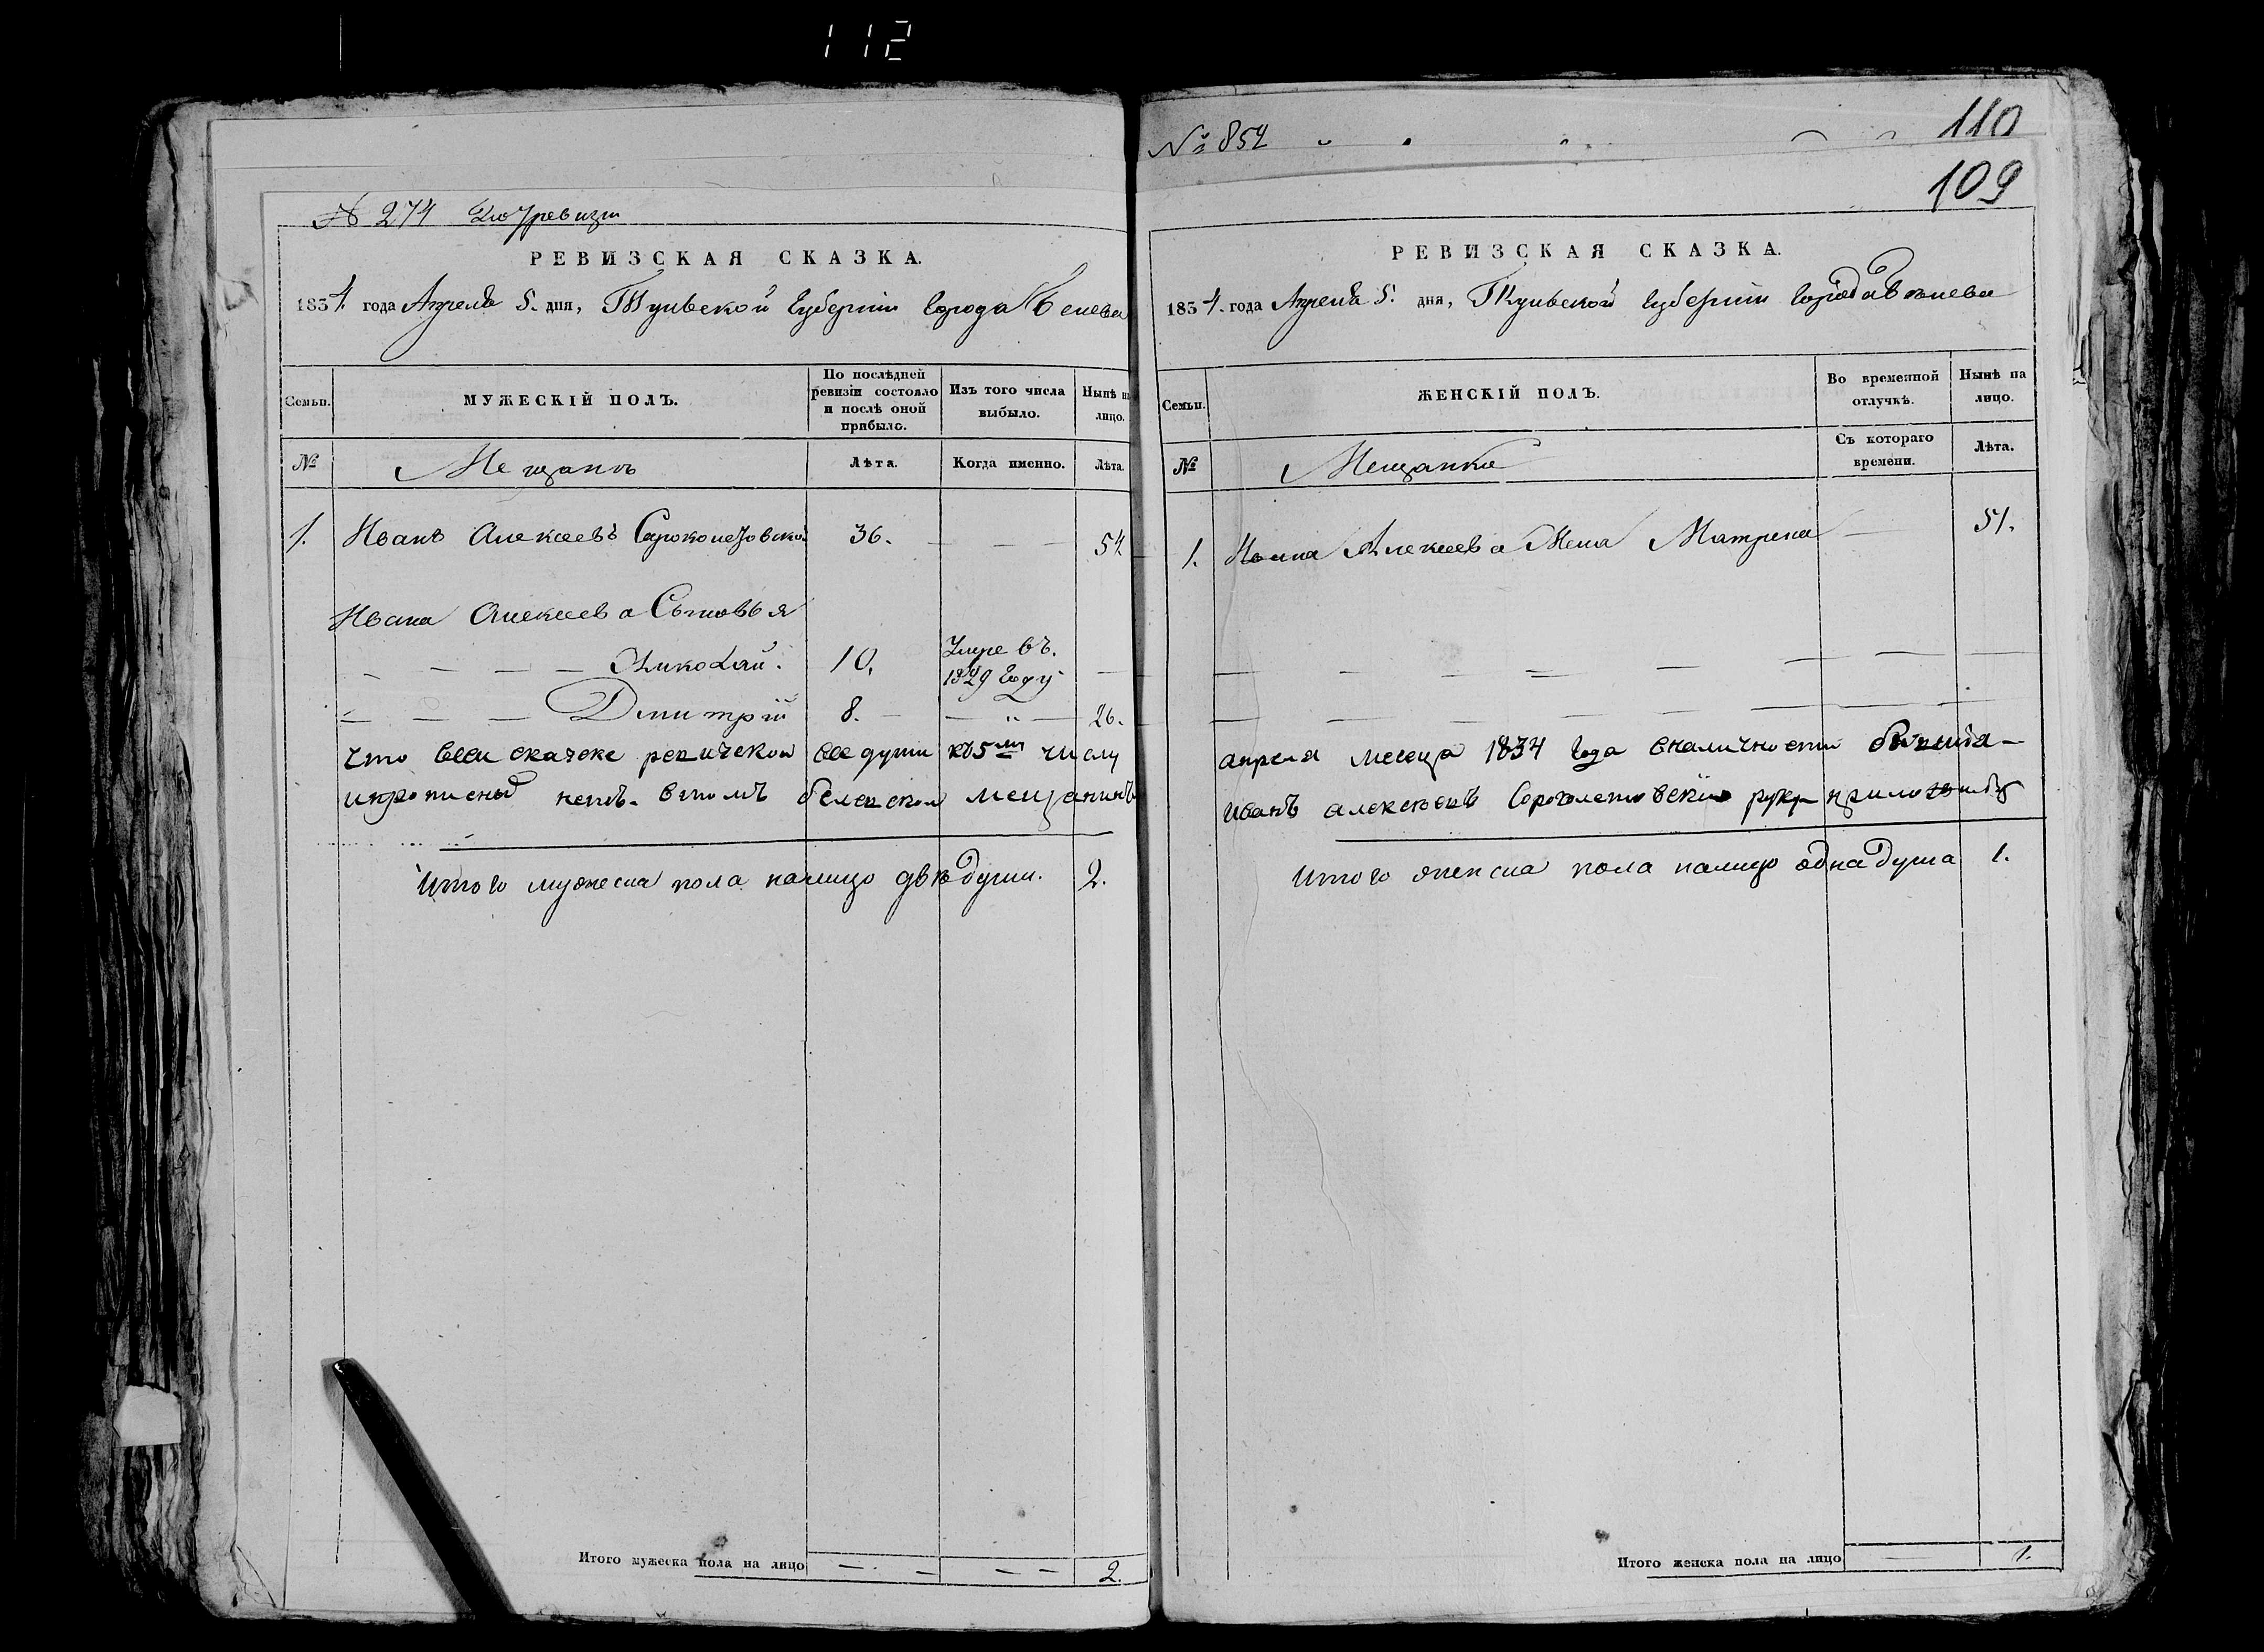 112
№ 274 По 7 ревизіи
РЕВИЗСКАЯ СКАЗКА.
1834. года Апреля 5. дня, Тульской Губерніи Города Белева
Семьи. МУЖЕСКІЙ ПОЛЪ. По послѣдней ревизіи состояло и послѣ оной прибыло. Изъ того числа выбыло. Нынѣ на лицо.
№ Мещанъ Лѣта. Когда именно. Лѣта.
1. Иванъ Алексеевъ 36. — — — 54
Ивана Алексеева Сыновья
— — — — Николай. 10. Умре въ. 1829 Году —
— — — — Дмитрій 8. — — " — 26.
что всеи скаске все души к 5му числу
нетъ. втомъ белевской мещанинъ
Итого мужеска пола налицо двѣ души. 2.
Итого мужеска пола на лицо — — — — 2.
№ 854
110
109
РЕВИЗСКАЯ СКАЗКА.
1834. года Апреля 5. дня, Тульской Губерніи Города Белева
Семьи. ЖЕНСКІЙ ПОЛЪ. Во временной отлучкѣ. Нынѣ на лицо.
№ Мещанки Съ котораго времени. Лѣта.
1. Ивана Алексеева Жена Матрена — 51.
апреля месеца 1834 года вналичности
иванъ алексеевъ руку приложилъ
Итого женска пола налицо одна душа 1.
Итого женска пола на лицо — 1.